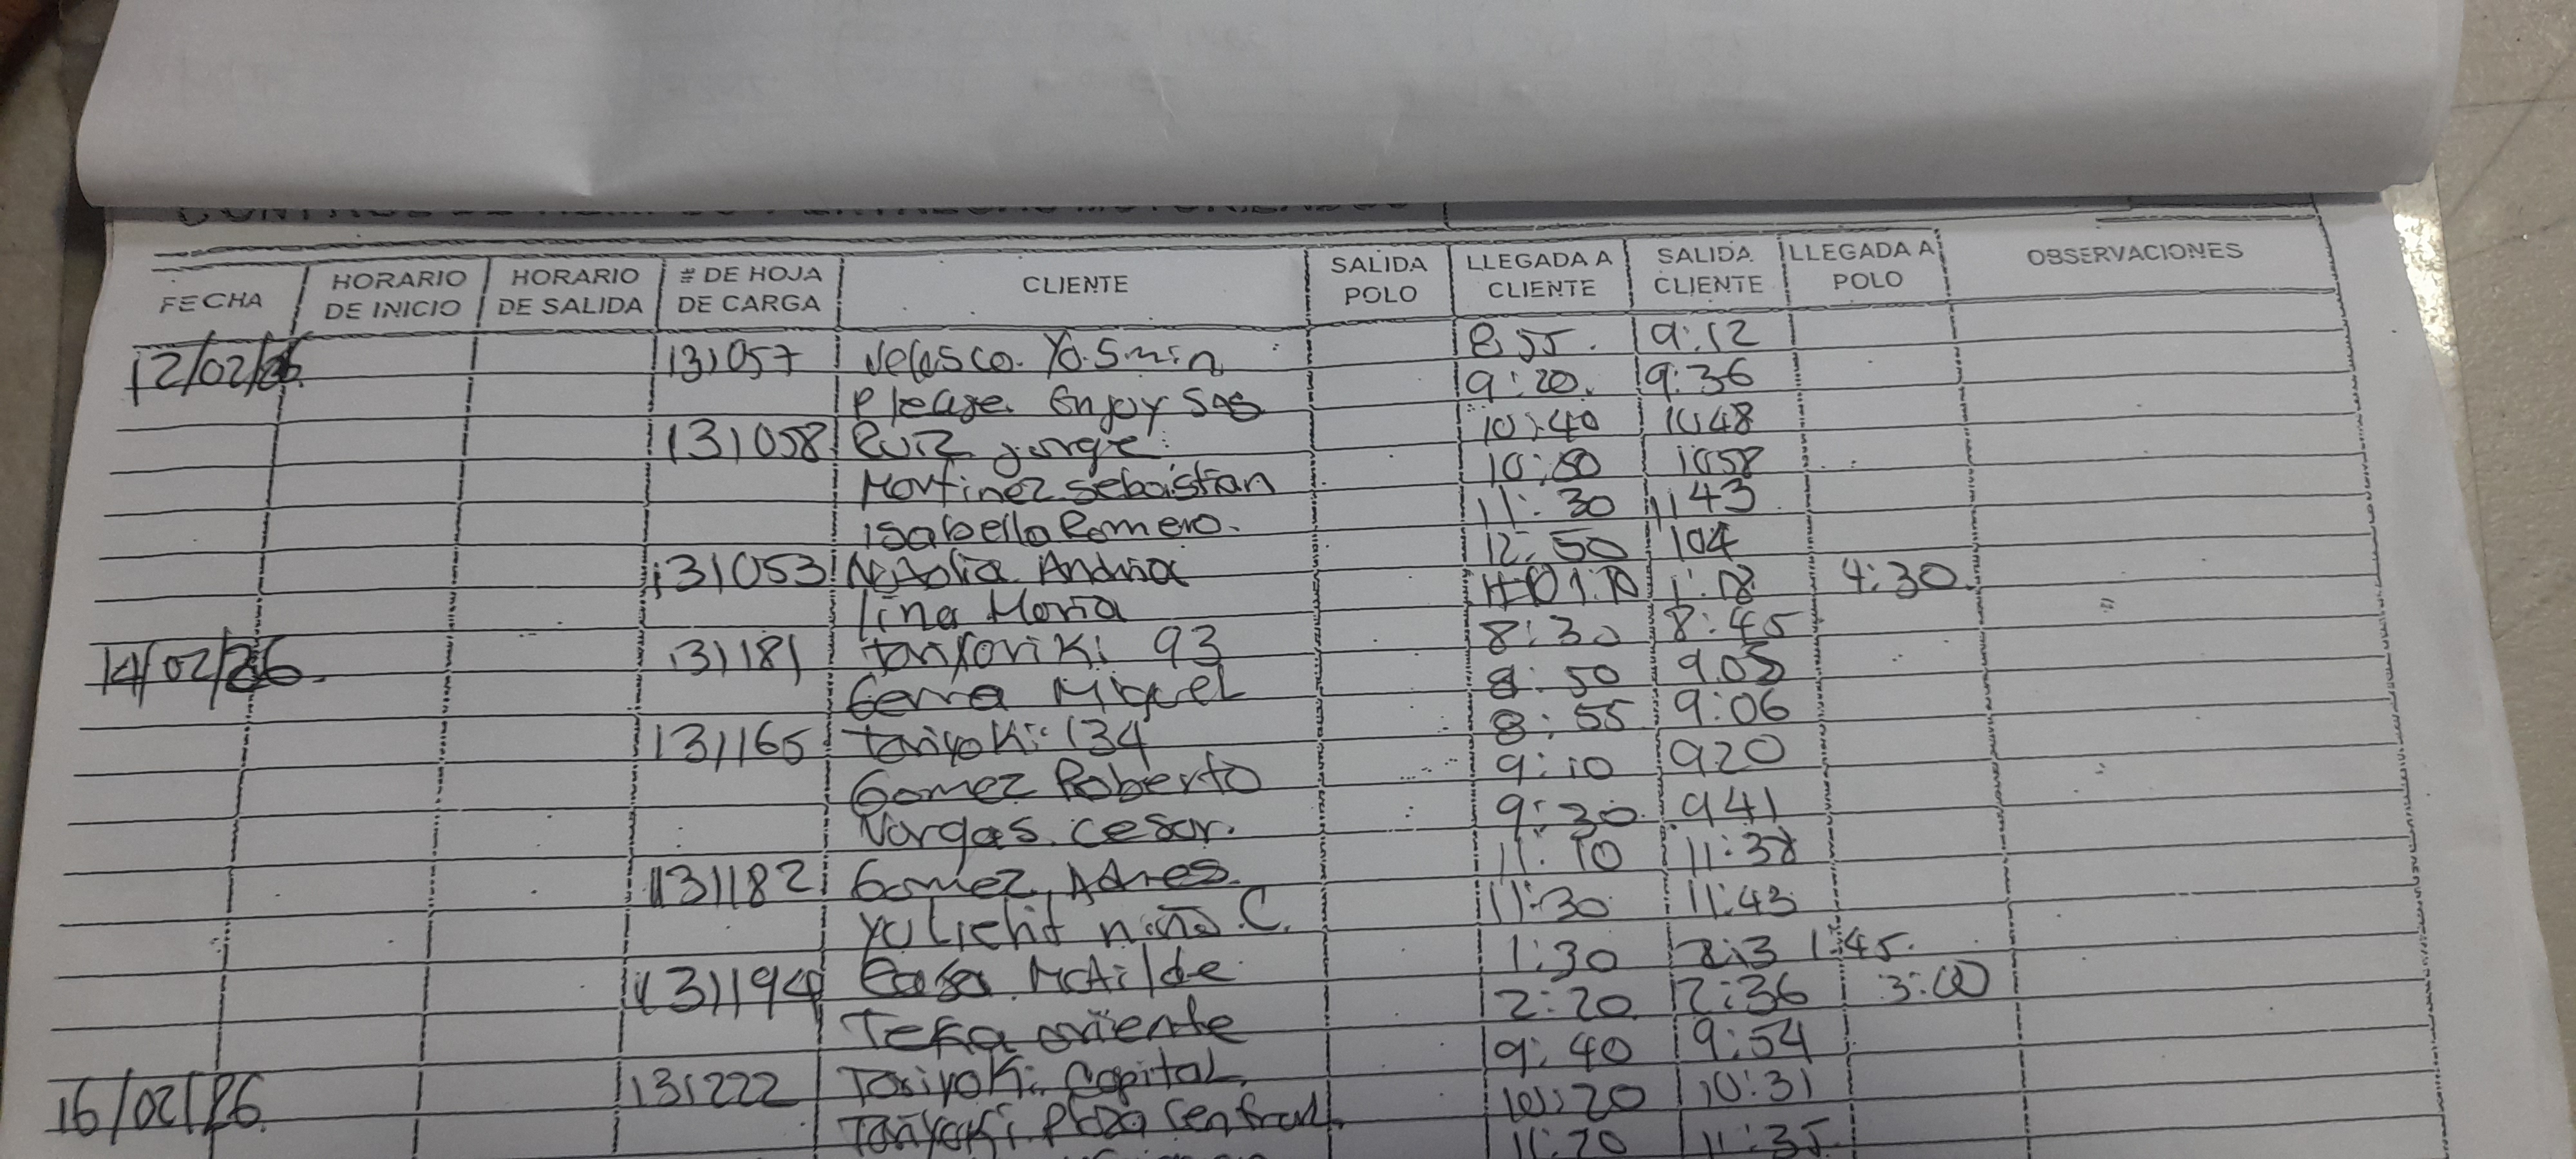 FECHA HORARIO DE INICIO HORARIO DE SALIDA # DE HOJA DE CARGA CLIENTE SALIDA POLO LLEGADA A CLIENTE SALIDA CLIENTE LLEGADA A POLO OBSERVACIONES
12/02/26 131057 Velasco Yasmin 8:55 9:12
Please Enjoy Sas 9:20 9:36
131058 Ruiz jorge 10:40 1048
Martinez sebaistian 10:50 1058
isabella Romero. 11:30 1143
131053 Natalia Andria 12:50 104
lina Maria 1:10 1:18 4:30
14/02/26 131181 93 8:30 8:45
Miguel 8:50 905
131165 Tariyaki 134 8:55 9:06
Gomez Roberto 9:10 920
Vargas cesar. 9:30 941
131182 Gomez Adres 11:10 11:38
niño C. 11:30 11:43
131194 Casa Matilde 1:30 1:45
oriente 2:20 2:36 3:00
16/02/26 131222 Tariyaki Capital 9:40 9:54
Tariyaki Plaza Central 10:20 10:31
11:20 11:35